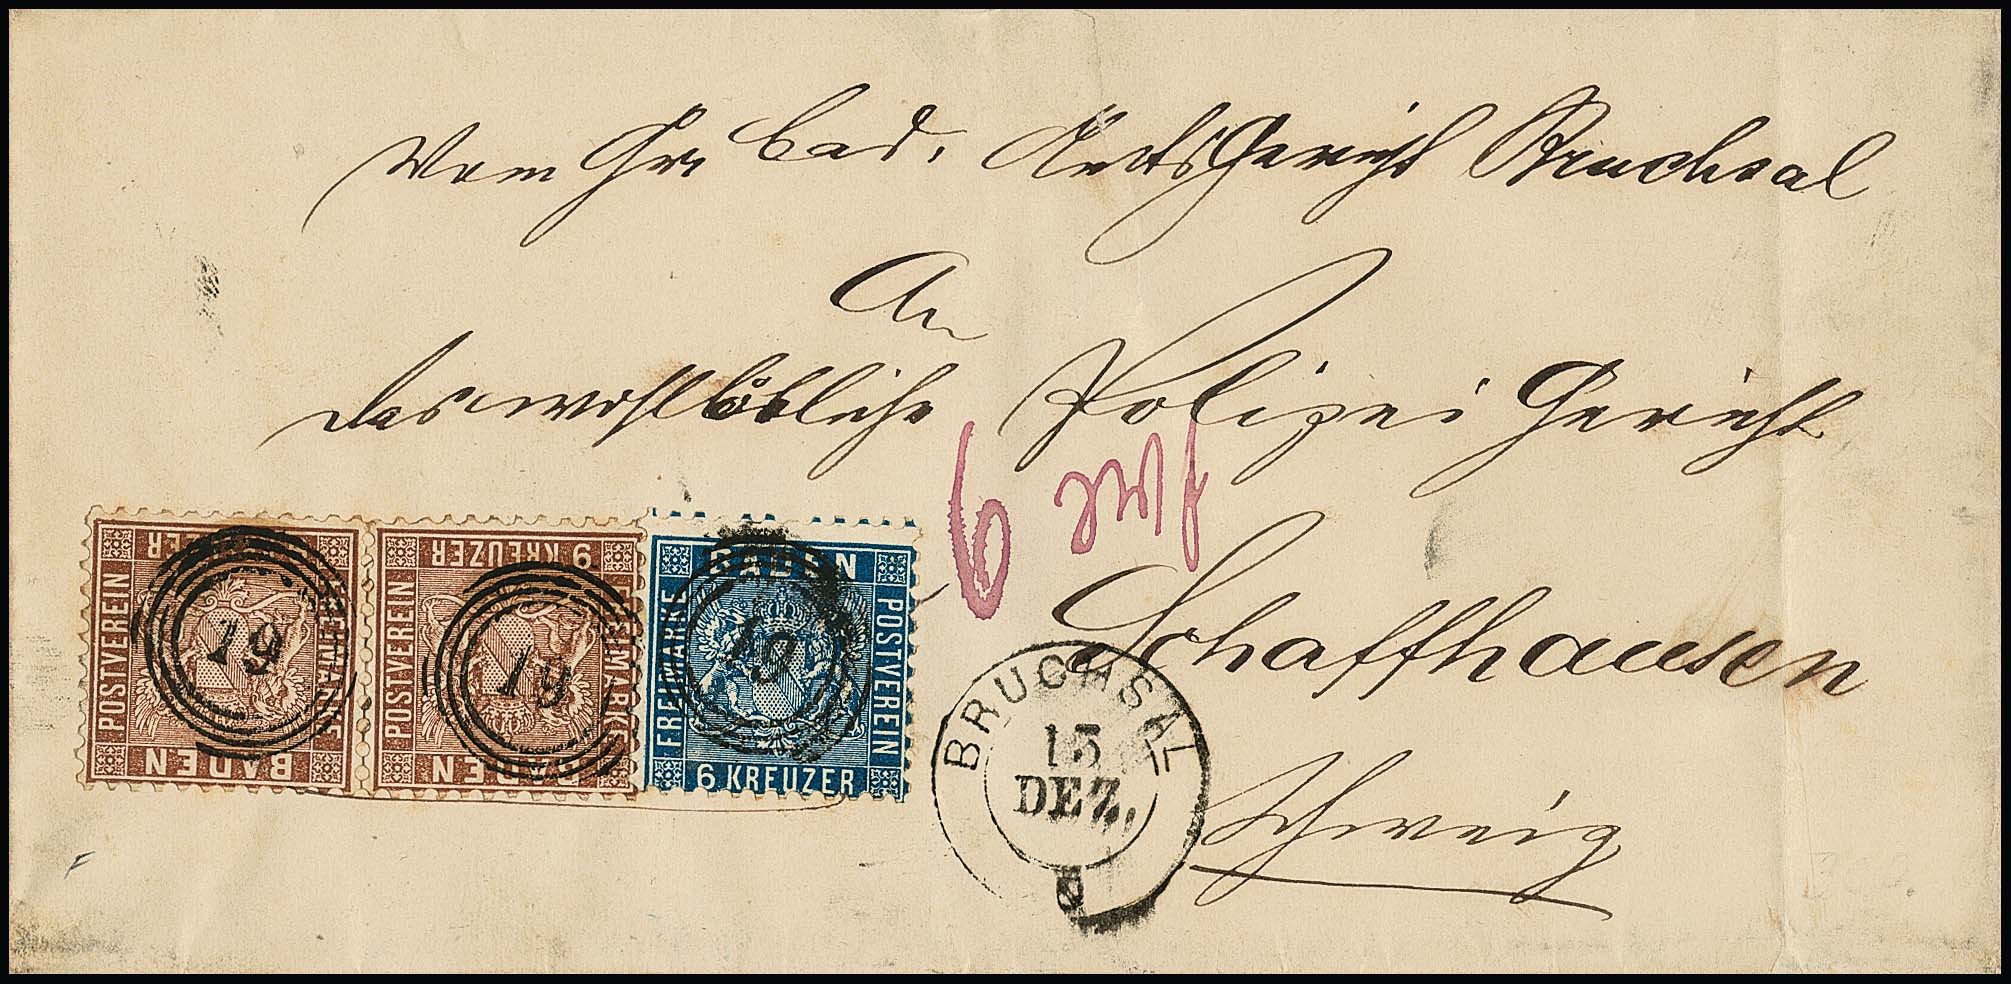 Vom Gr. bad. AmtsGericht Bruchsal
An
das wohllöbliche Polizei Gericht
6
Schaffhausen
Schweiz
POSTVEREIN
BADEN
19
9 KREUZER
POSTVEREIN
FREIMARKE
BADEN
19
BADEN
FREIMARKE
POSTVEREIN
6 KREUZER
19
BRUCHSAL
15
DEZ.